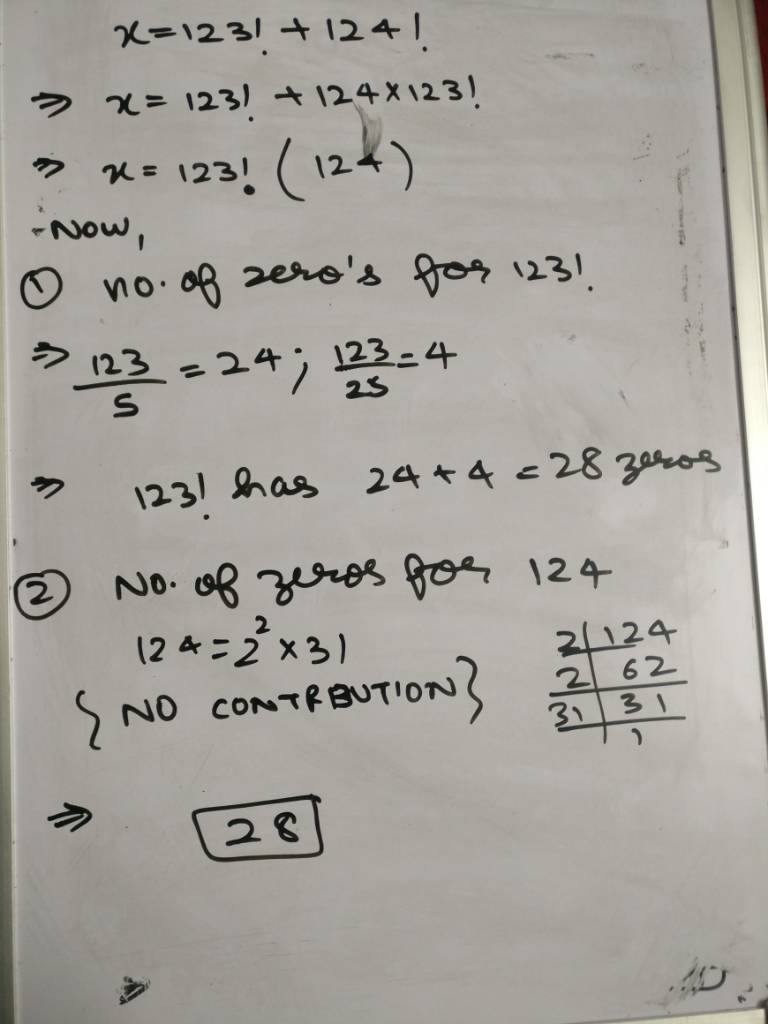 x = 123! + 124!
⇒ x = 123! + 124 × 123!
⇒ x = 123! (124)
Now,
① no. of zero's for 123!
⇒ 123/5 = 24; 123/25 = 4
⇒ 123! has 24 + 4 = 28 zeros
② No. of zeros for 124
124 = 2² × 31
{ NO CONTRBUTION }
2 | 124
2 | 62
31 | 31
1
⇒ 28